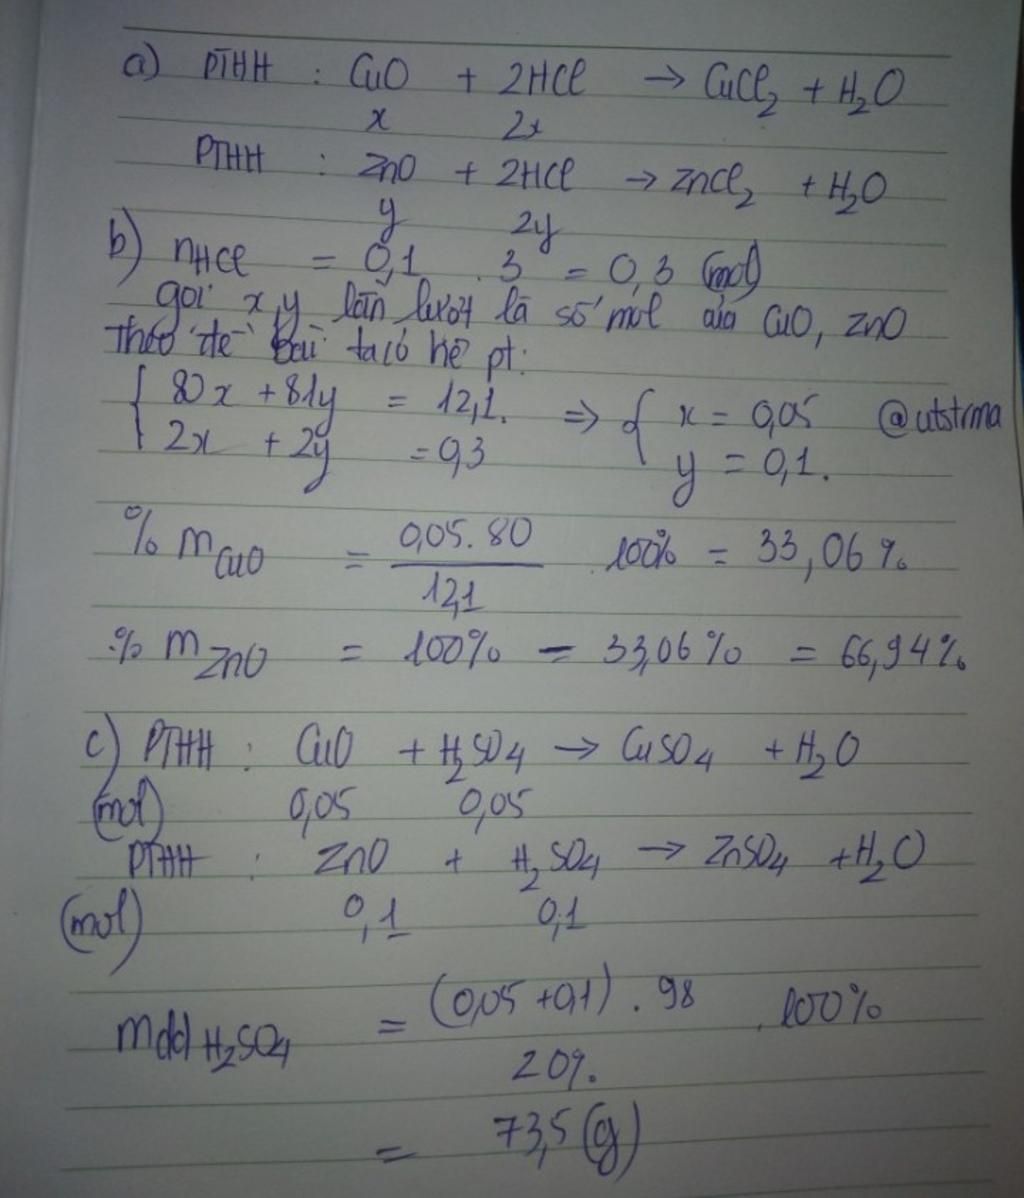 a) PTHH : CuO + 2HCl → CuCl₂ + H₂O
x 2x
PTHH : ZnO + 2HCl → ZnCl₂ + H₂O
y 2y
b) nHCl = 0,1 . 3 = 0,3 (mol)
gọi x,y lần lượt là số mol của CuO, ZnO
theo đề bài ta có hệ pt:
{ 80x + 81y = 12,1. => { x = 0,05 @utstrma
2x + 2y = 0,3 y = 0,1.
% mCuO = 0,05.80 / 12,1 . 100% = 33,06%
% mZnO = 100% - 33,06% = 66,94%
c) PTHH : CuO + H₂SO₄ → CuSO₄ + H₂O
(mol) 0,05 0,05
PTHH : ZnO + H₂SO₄ → ZnSO₄ + H₂O
(mol) 0,1 0,1
mdd H₂SO₄ = (0,05 + 0,1) . 98 / 20% . 100%
= 73,5 (g)